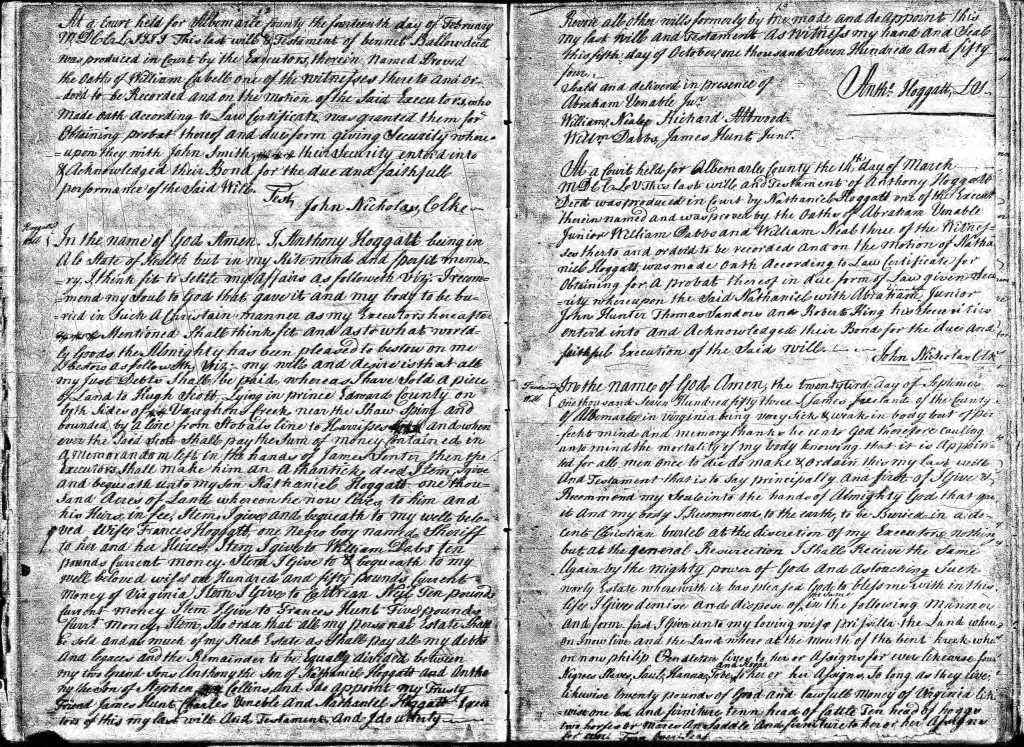 At a Court held for Albemarle County the fourteenth day of February
This last will & Testament of bennet Ballow decd
was produced in Court by the Executors, therein Named Proved
the Oath of William Cabell one of the witnesses thereto and Or-
derd to be Recorded and on the Motion of the Said Executors who
Made Oath According to Law Certificate was granted them for
Obtaining probat thereof and due form giving Security where-
upon they with John Smith, their Security enterd into
& Acknowledged their Bond for the due and faithfull
performance of the Said Will.
Test, John Nicholas, Clke
Hoggatt
Will
In the name of God Amen. I Anthony Hoggatt being in
A lo State of Health but in my Rite mind and perfit memo-
ry, I think fit to Settle my Affairs as followeth Viz: I recom-
mend my Soul to God that gave it and my body to be bu-
ried in Such A Christain manner as my Executors hereafter
Mentioned Shall think fit and as to what world-
ly Goods the Almighty has been pleased to bestow on me
I bestow as followeth, Viz: my will and desire is that all
my Just Debts Shall be paid, whereas I have Sold A piece
of Land to Hugh Scott, Lying in prince Edward County on
both Sides of Vaughons Creek near the Shaw Spring and
bounded by a line from line to and when
ever the Said Scott Shall pay the Sum of money Contained in
A memorandom left in the hands of James then the
Executors Shall make him an Athantick deed Item, I give
and bequeath unto my Son Nathaniel Hoggatt one thou-
sand Acres of Land whereon he now lives to him and
his Heirs, in fee, Item, I give and bequeath to my well belo-
ved Wife Frances Hoggatt, one Negro boy named Sheriff
to her and her Heires, Item I give to William Dabs ten
pounds Current money. Item I Give to & bequeath to my
well beloved wife one Hundred and fifty pounds Current
Money of Virginia Item I Give to Ten pound
Current money Item I Give to Frances Hunt Five pounds
Curt. Money, Item, I do order that all my personal Estate Shall
be Sold and as much of my Real Estate as Shall pay all my debts
And legaces and the Remainder to be Equally divided between
my two Grand Sons Anthony the Son of Nathaniel Hoggatt and Antho-
ny the Son of Stephen Collins, And I do Appoint my Trusty
Friend James Hunt, Charles Venable And Nathaniel Hoggatt
tors of this my last will And Testament, and I do utterly
Revoke all Other wills formerly by me made and do Appoint this
my last Will and Testament As witness my hand and Seal
this fifth day of October one thousand Seven Hundred And fifty
four
Seald and deliverd in presence of
Anthy. Hoggatt, LS
Abraham Venable Junr.
William Neale, Richard Attwood
Willm. Dabbs, James Hunt Junr.
At a Court held for Albemarle County the 14th day of March
This last will and Testament of Anthony Hoggatt
Decd was produced in Court by Nathaniel Hoggatt one of the Execut
therein named and was proved by the Oaths of Abraham Venable
Junior William Dabbs and William Neal three of the Witnes-
ses therto and orderd to be recorded And on the Motion of Natha
niel Hoggatt, was made Oath According to Law Certificate for
Obtaining for A probat thereof in due form of Law given Secu-
rity whereupon the Said Nathaniel with Abraham Venable Junior
John Hunter Thomas Sanders and Robert King his Securities
enterd into And Acknowledged their Bond for the due And
faithful Execution of the Said will.
John Nicholas Clk
Will
In the name of God Amen, the twenty third day of September
One thousand Seven Hundred fifty three I James of the County
of Albemarle in Virginia being very Sick & weak in body but of per
fect mind and memory thanks be unto God therefore Calling
unto mind the mortality of my body knowing that it is Appoin-
ted for all men once to die do make & ordain this my Last will
And Testament that is to Say principally And first of I Give &
Recommend my Soul into the hands of Almighty God that gave
it And my body I Recommend to the earth, to be Buried in a de-
cent Christian buriel at the discretion of my Executors, nothing
but at the general Resurrection I Shall Receive the Same
Again by the mighty power of God And as touching Such
worly Estate wherewith it has pleased God to bless me with in this
life, I Give demise And dispose of in the following Manner
And form first I Give unto my loving wife prisilla the Land where
on I now live and the Land where at the Mouth of the bent kreek whe
on now philip lives to her or Asigns for ever likewise four
Negroes Slaves, Saul, Hanna, Tobe, and Hope to her or her Asigns, So long as they live,
likewise twenty pounds of Good and lawfull Money of Virginia lik-
wise one bed and furniture, tenn head of Cattle Ten head of hoggs
two horses or mares An Saddle And furniture to her or her Asigns
for ever